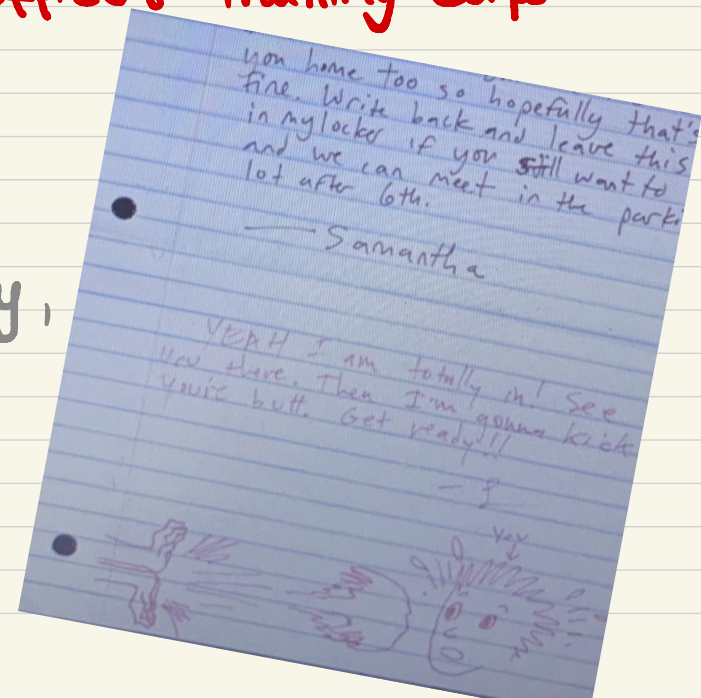 Training Corps
y,
you home too so hopefully that's
fine. Write back and leave this
in my locker if you still want to
and we can meet in the park
lot after 6th.
— Samantha
YEAH I am totally in! See
you there. Then I'm gonna kick
youre butt. Get ready!!!
You